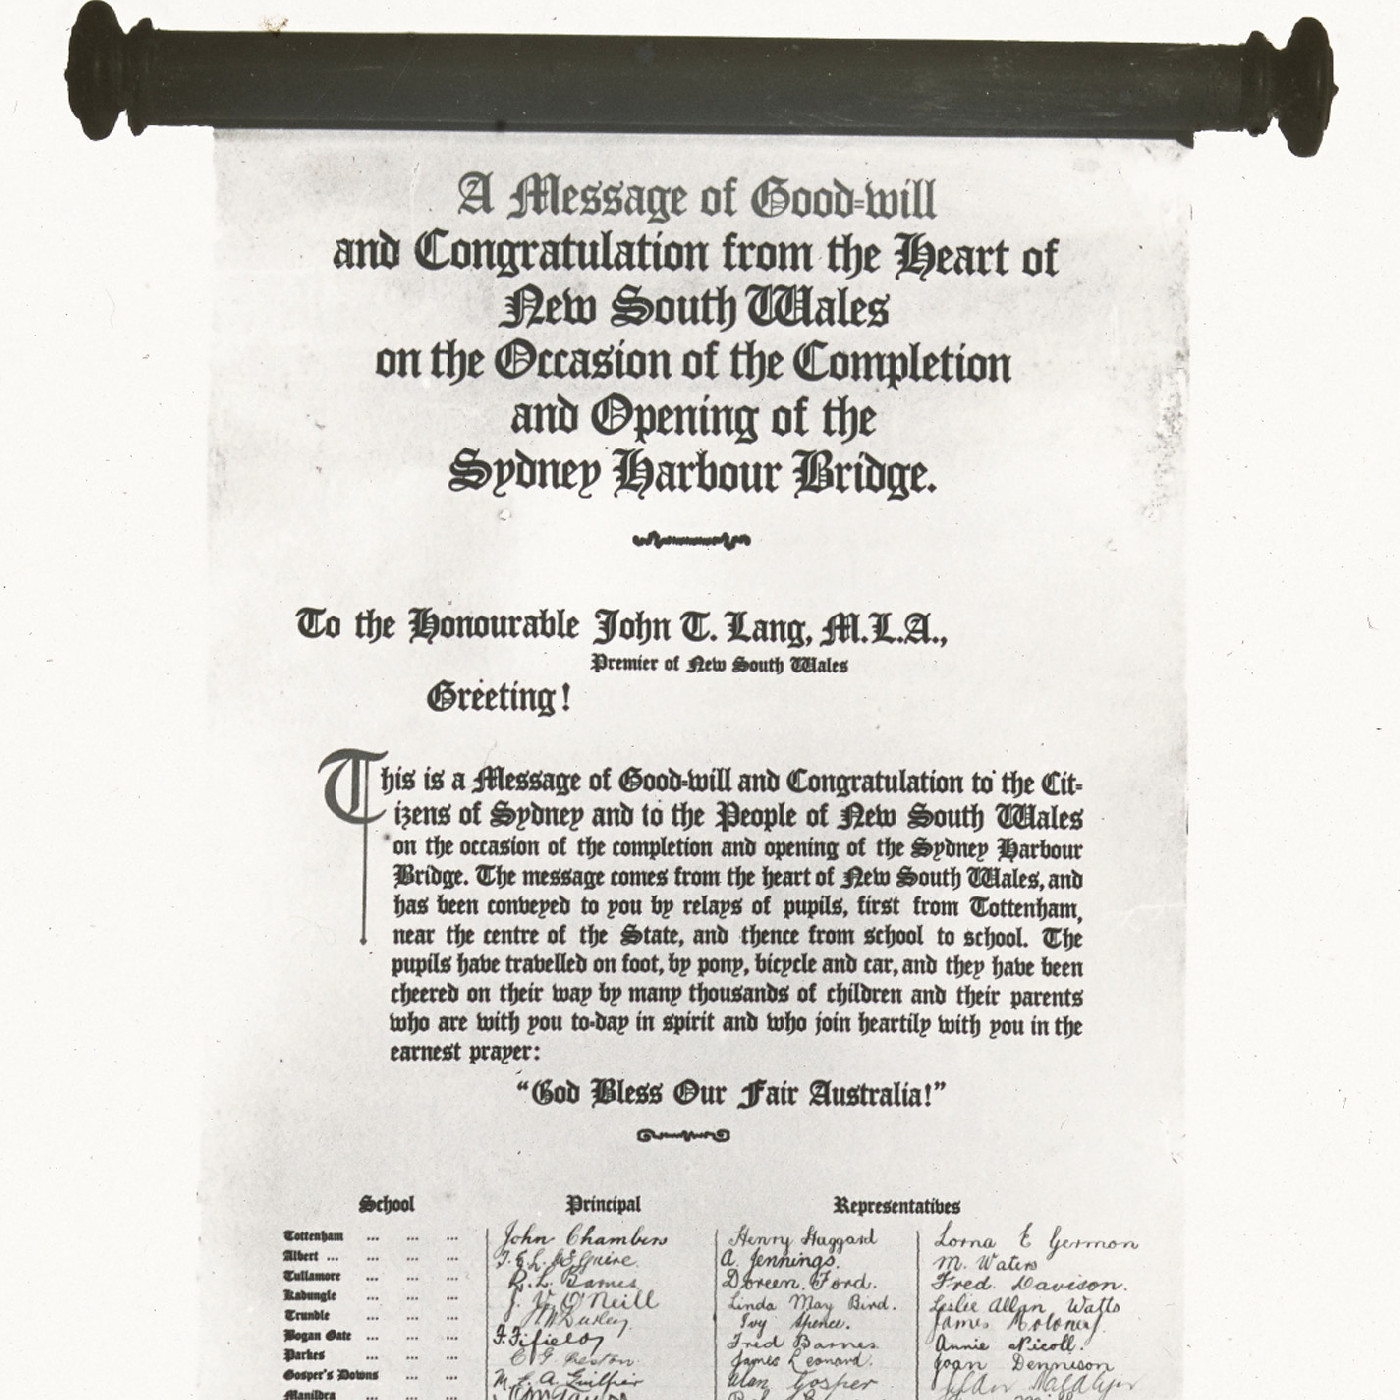 A Message of Good-will
and Congratulation from the Heart of
New South Wales
on the Occasion of the Completion
and Opening of the
Sydney Harbour Bridge.
To the Honourable John T. Lang, M.L.A.,
Premier of New South Wales
Greeting!
This is a Message of Good-will and Congratulation to the Cit-
izens of Sydney and to the People of New South Wales
on the occasion of the completion and opening of the Sydney Harbour
Bridge. The message comes from the heart of New South Wales, and
has been conveyed to you by relays of pupils, first from Tottenham,
near the centre of the State, and thence from school to school. The
pupils have travelled on foot, by pony, bicycle and car, and they have been
cheered on their way by many thousands of children and their parents
who are with you to-day in spirit and who join heartily with you in the
earnest prayer:
“God Bless Our Fair Australia!”
School Principal Representatives
Tottenham ... ... ... John Chambers Henry Huggard Lorna E Germon
Albert ... ... ... A. Jennings. M. Waters
Tullamore ... ... ... R. L. Barnes Doreen. Ford. Fred Davison.
Kadungle ... ... ... O'Neill Linda May Bird. Leslie Allan Watts
Trundle ... ... ... Ivy Spence. James Moloney
Bogan Gate ... ... ... F. Fifield Fred Barnes Annie Nicoll.
Parkes ... ... ... James Leonard. Joan Dennison
Gosper's Downs ... ... M. E. A. Alan Gosper
Manildra ... ... ...